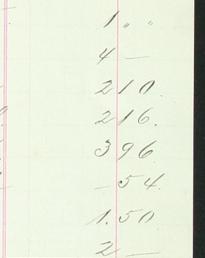 1 " "
4 —
2 10.
2 16.
3 96
— 54.
1.50
2 —